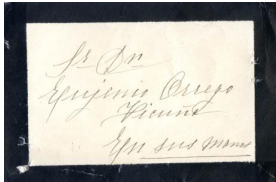 Sr Dn
Eujenio Orrego
Vicuña
En sus manos